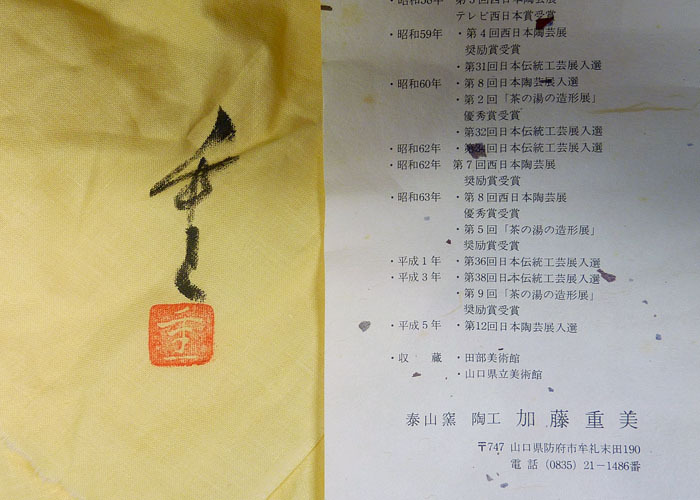 ・昭和58年 ・第5回西日本陶芸展
テレビ西日本賞受賞
・昭和59年 ・第4回西日本陶芸展
奨励賞受賞
・第31回日本伝統工芸展入選
・昭和60年 ・第8回日本陶芸展入選
・第2回「茶の湯の造形展」
優秀賞受賞
・第32回日本伝統工芸展入選
・昭和62年 ・第34回日本伝統工芸展入選
・昭和62年 第7回西日本陶芸展
奨励賞受賞
・昭和63年 ・第8回西日本陶芸展
優秀賞受賞
・第5回「茶の湯の造形展」
奨励賞受賞
・平成1年 ・第36回日本伝統工芸展入選
・平成3年 ・第38回日本伝統工芸展入選
・第9回「茶の湯の造形展」
奨励賞受賞
・平成5年 ・第12回日本陶芸展入選
・収蔵 ・田部美術館
・山口県立美術館
泰山窯 陶工 加藤重美
〒747 山口県防府市牟礼末田190
電話(0835)21-1486番
重